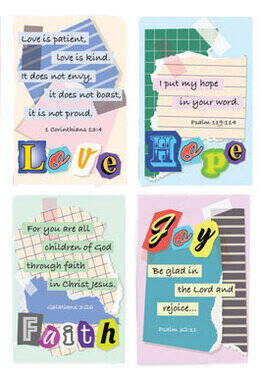 Love is patient,
love is kind.
It does not envy,
it does not boast,
it is not proud.
1 Corinthians 13:4
Love
I put my hope
in your word.
Psalm 119:114
Hope
For you are all
children of God
through faith
in Christ Jesus.
Galatians 3:26
Faith
Joy
Be glad in
the Lord and
rejoice...
Psalm 32:11